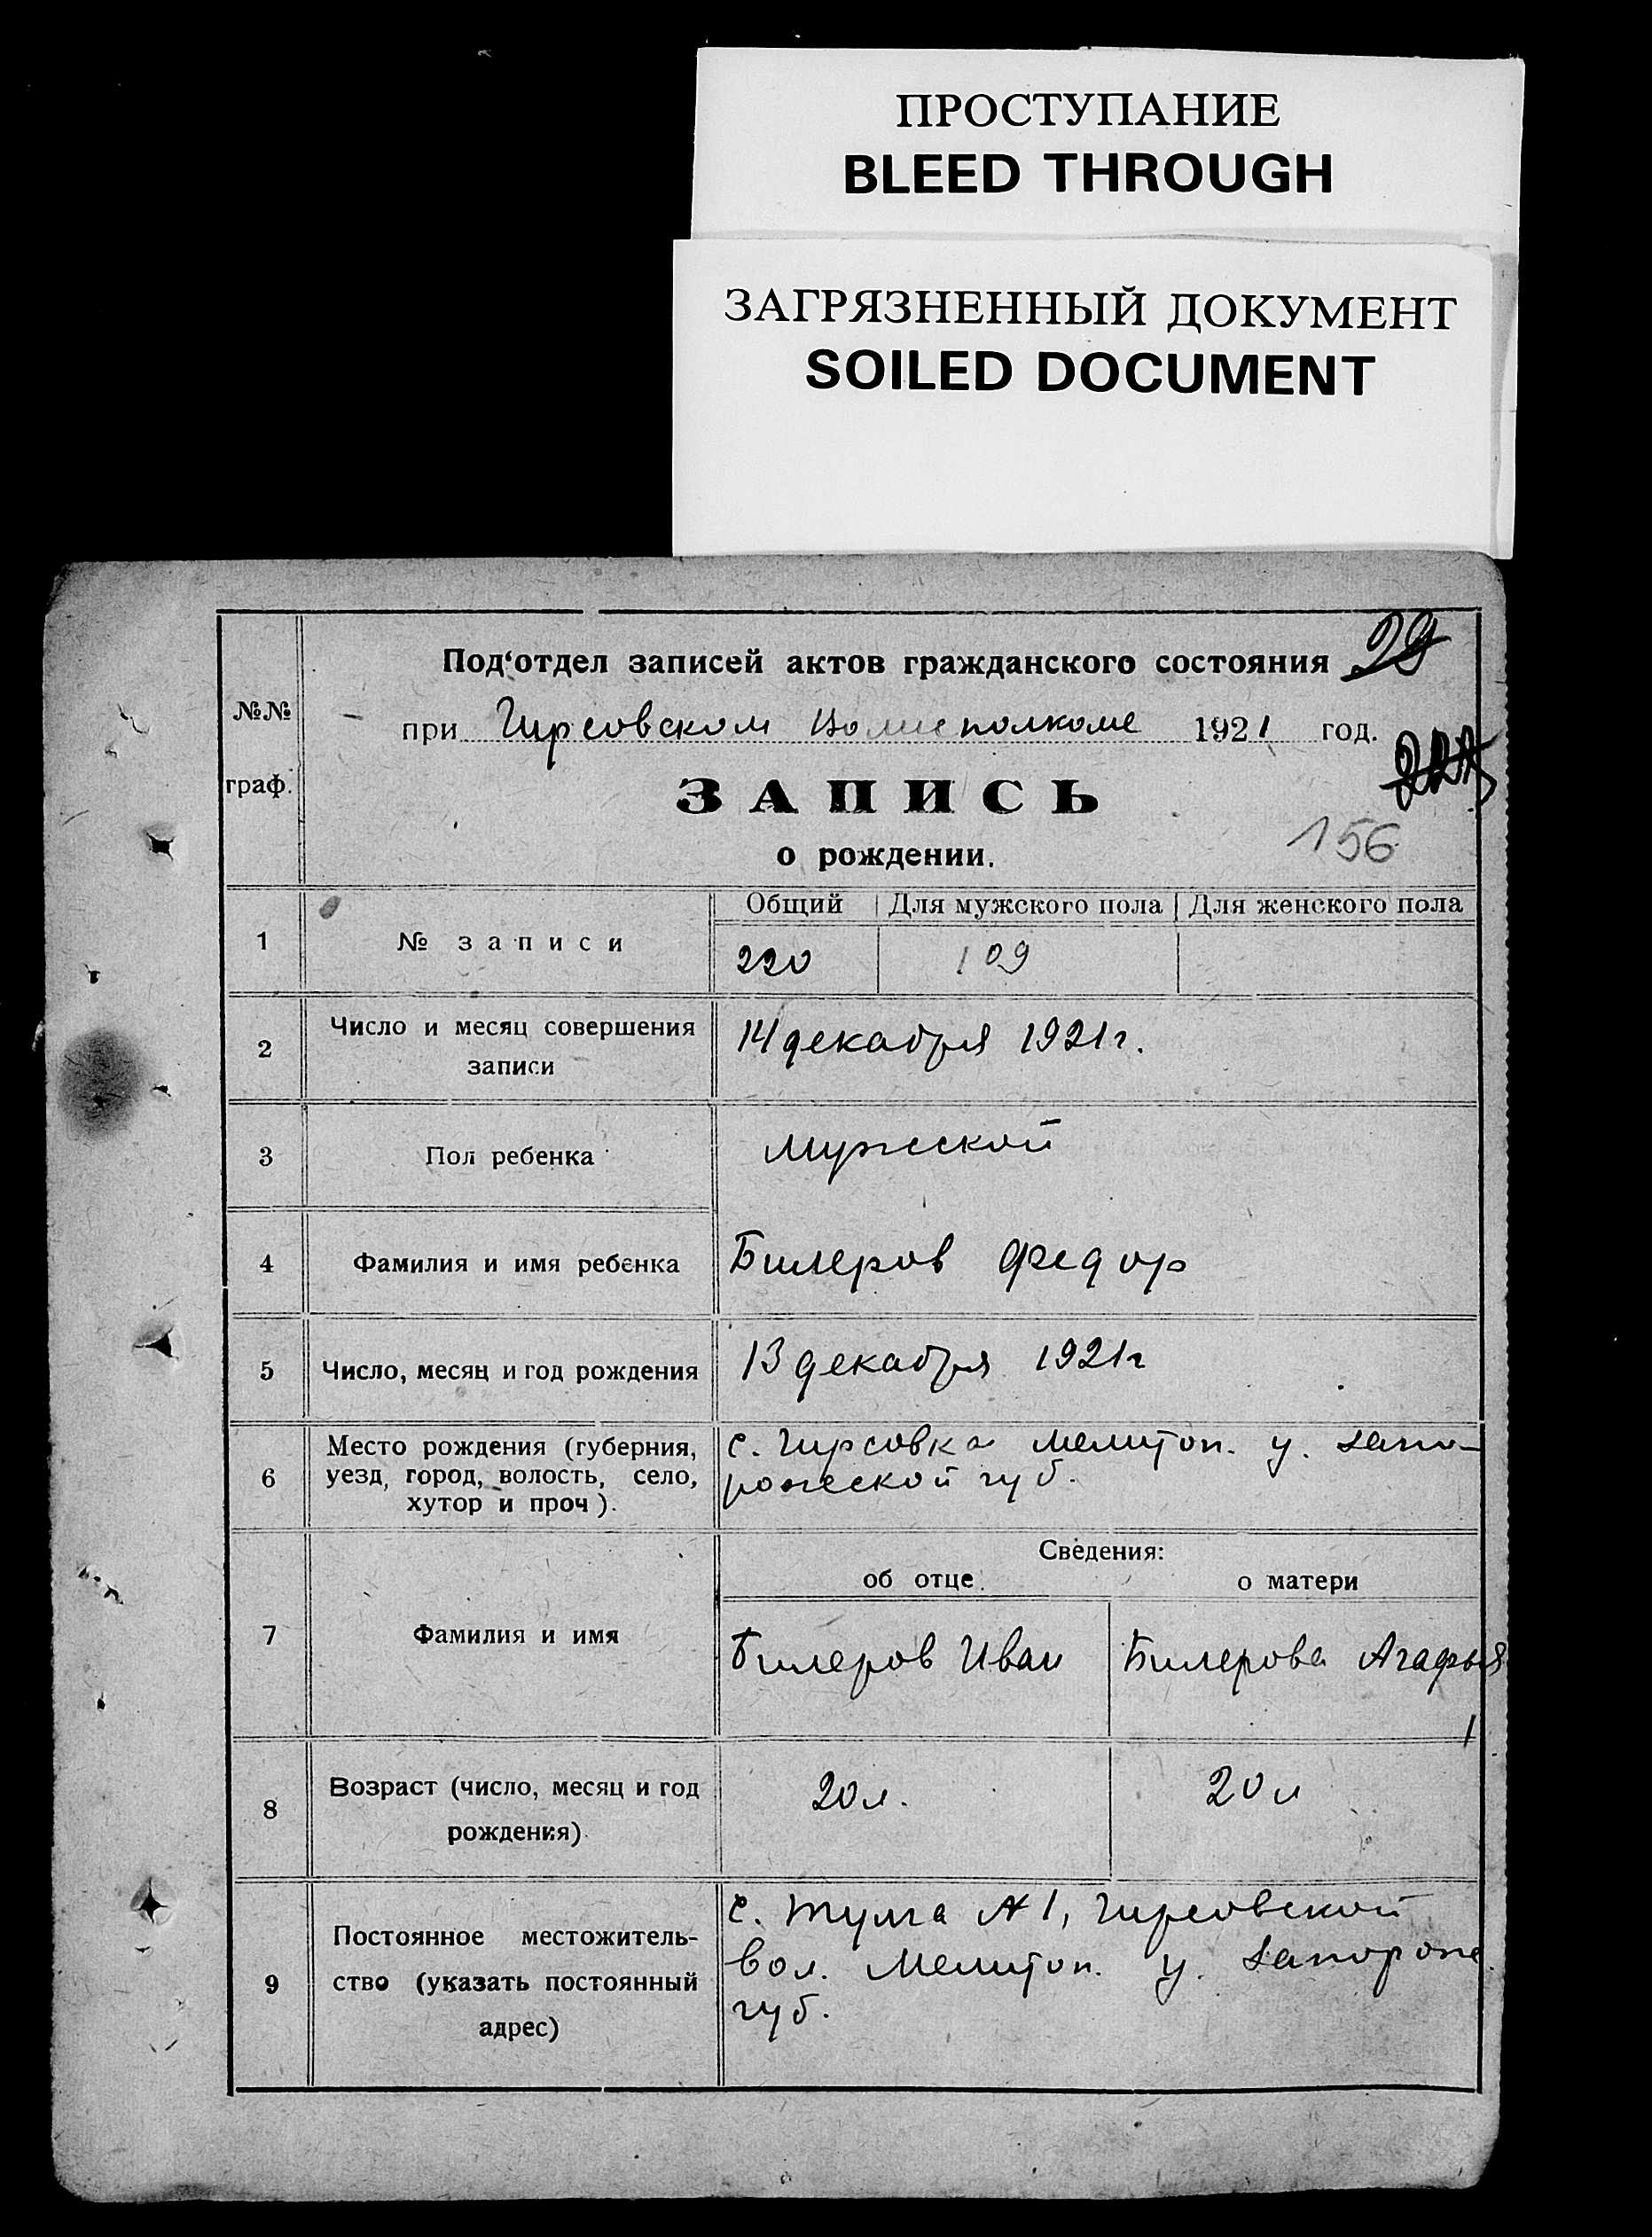 ПРОСТУПАНИЕ
BLEED THROUGH
ЗАГРЯЗНЕННЫЙ ДОКУМЕНТ
SOILED DOCUMENT
Под‘отдел записей актов гражданского состояния 29
№№
при Гирсовском Волисполкоме 1921 год.
граф.
ЗАПИСЬ
156
о рождении.
Общий Для мужского пола Для женского пола
1 № записи 220 109
2 Число и месяц совершения записи
14 декабря 1921г.
3 Пол ребенка
мужской
4 Фамилия и имя ребенка
Билеров Федор
5 Число, месяц и год рождения
13 декабря 1921г
6 Место рождения (губерния,
уезд, город, волость, село,
хутор и проч).
с. Гирсовка Мелитоп. у. Запо-
рожской губ.
Сведения:
об отце. о матери
7 Фамилия и имя
Билеров Иван Билерова Агафья
8 Возраст (число, месяц и год
рождения)
20 л. 20 л
9 Постоянное местожитель-
ство (указать постоянный
адрес)
с. Тулга №1, Гирсовской
вол. Мелитоп. у. Запорож.
губ.